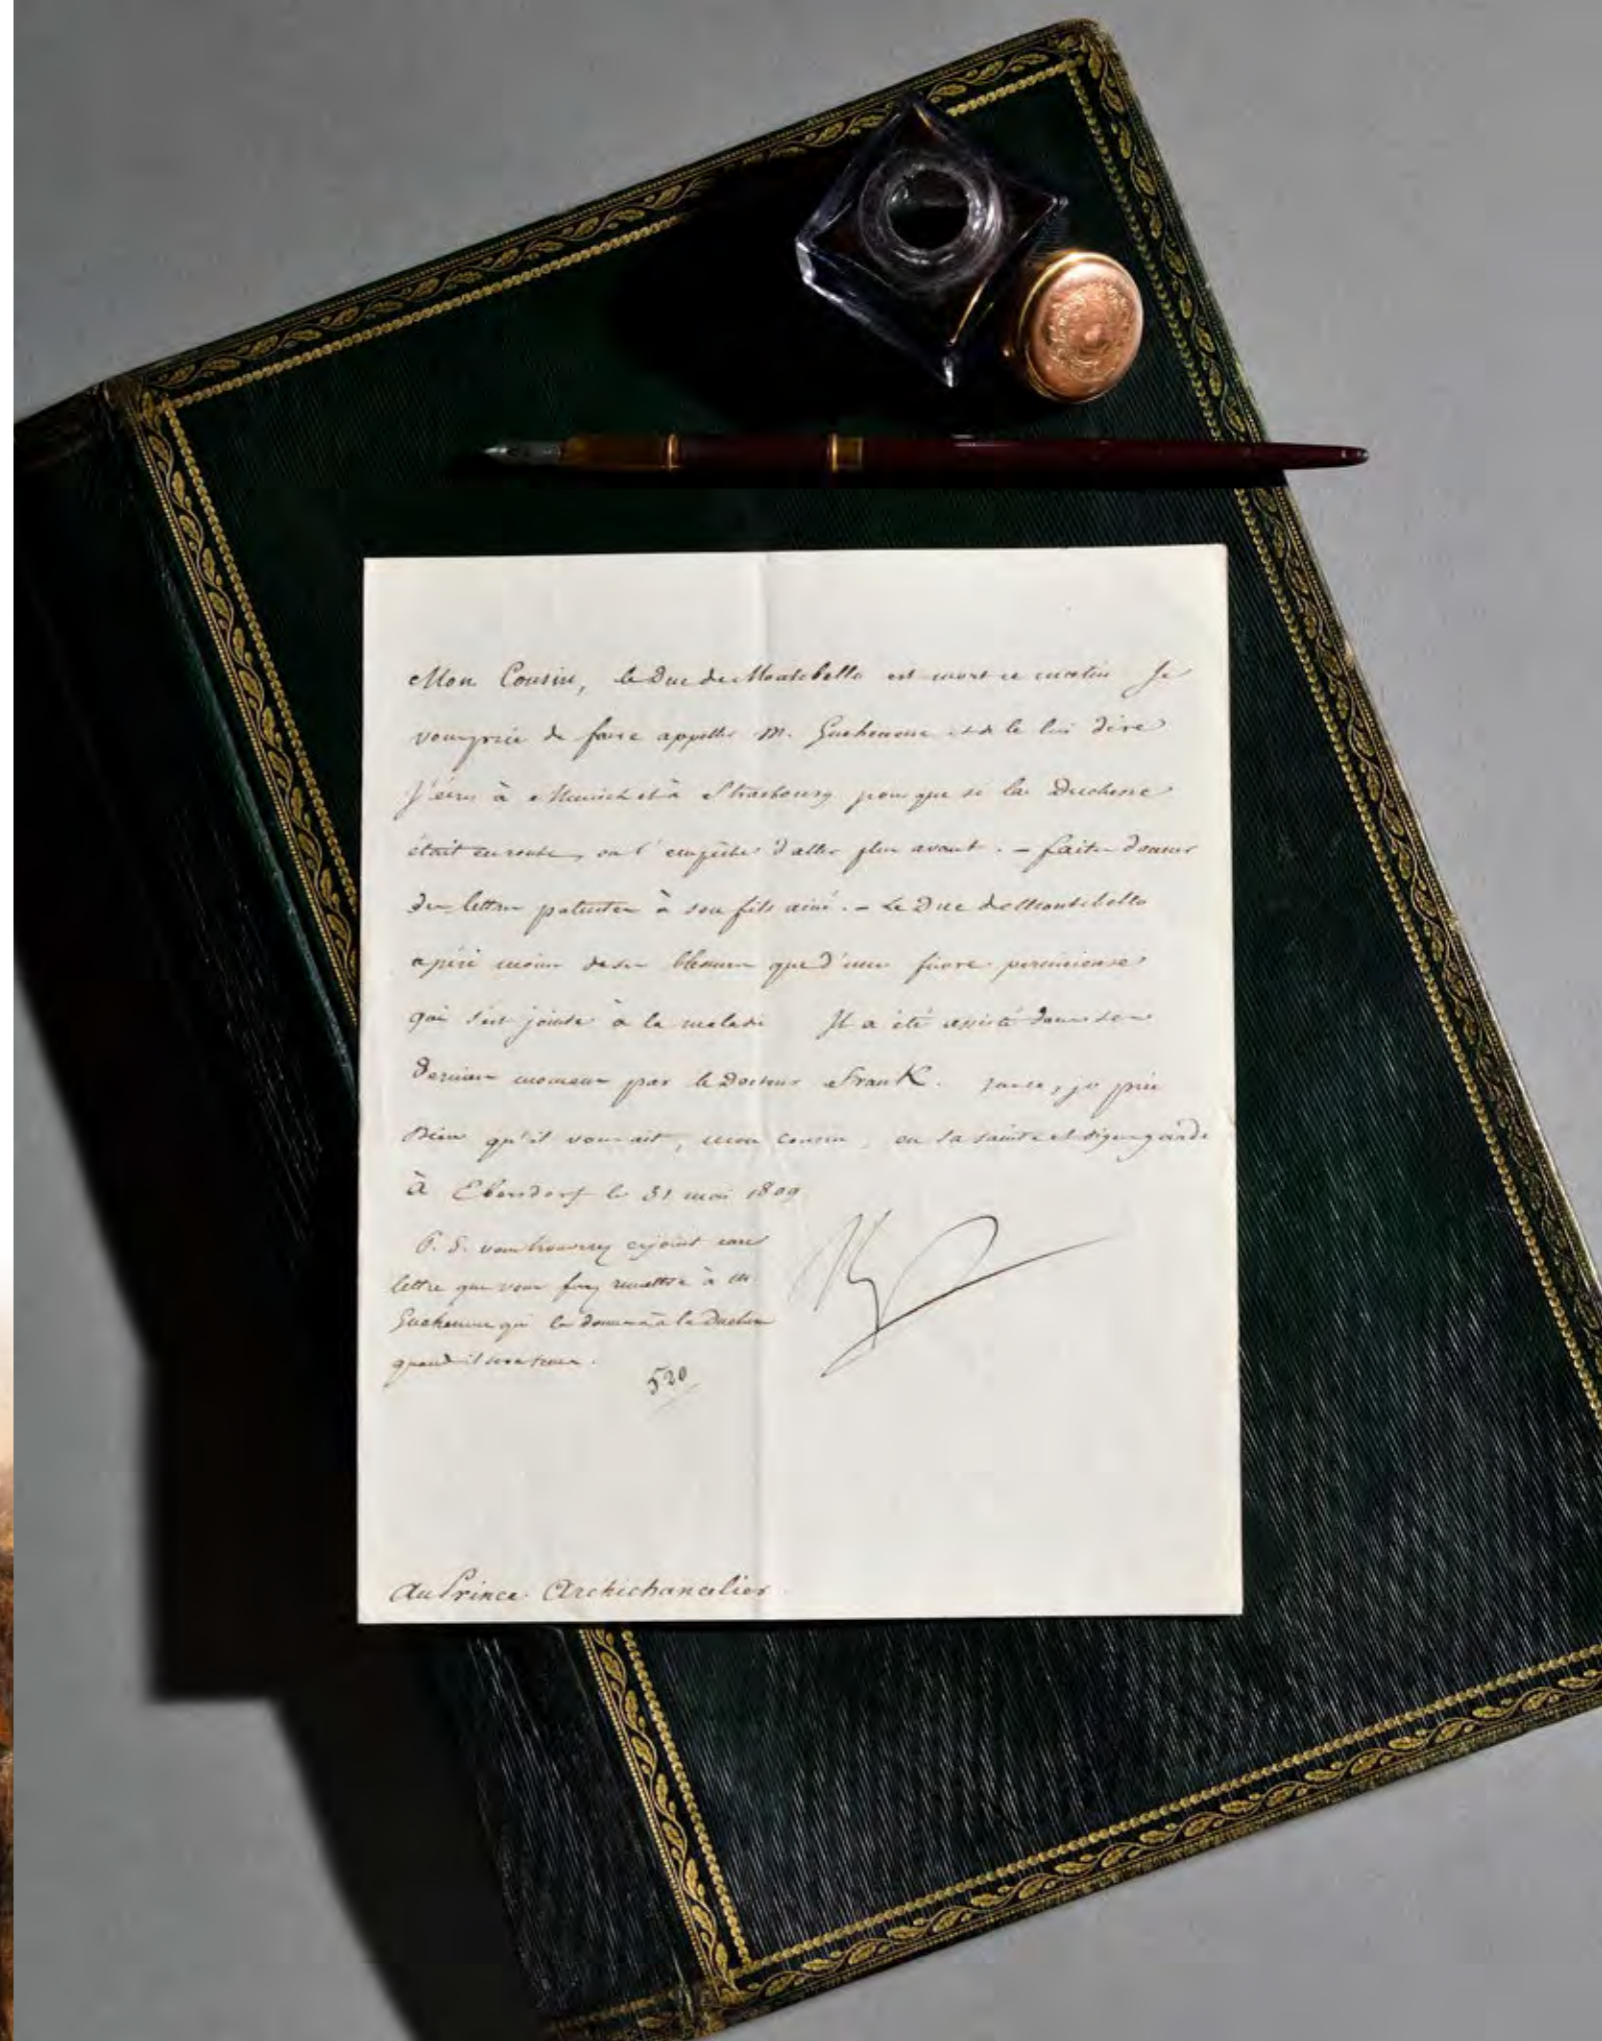 Mon Cousin, le Duc de Montebello est mort ce matin Je
vous prie de faire appeller M. Gueheneuc et de le lui dire
J'écris à Munich et à Strasbourg pour que si la Duchesse
était en route, on l'empêche d'aller plus avant. – faites donner
des lettres patentes à son fils ainé. – Le Duc de Montebello
a péri moins de ses blessures que d'une fièvre pernicieuse
qui s'est jointe à la maladie Il a été assisté dans ses
derniers momens par le Docteur Frank. sur ce, je prie
Dieu qu'il vous ait, mon cousin, en sa sainte et digne garde
à Ebersdorf le 31 mai 1809
P. S. vous trouverez cijoint une
lettre que vous ferez remettre à M.
Gueheneuc qui la donnera à la Duchesse
quand il sera tems.
520
Au Prince Archichancelier